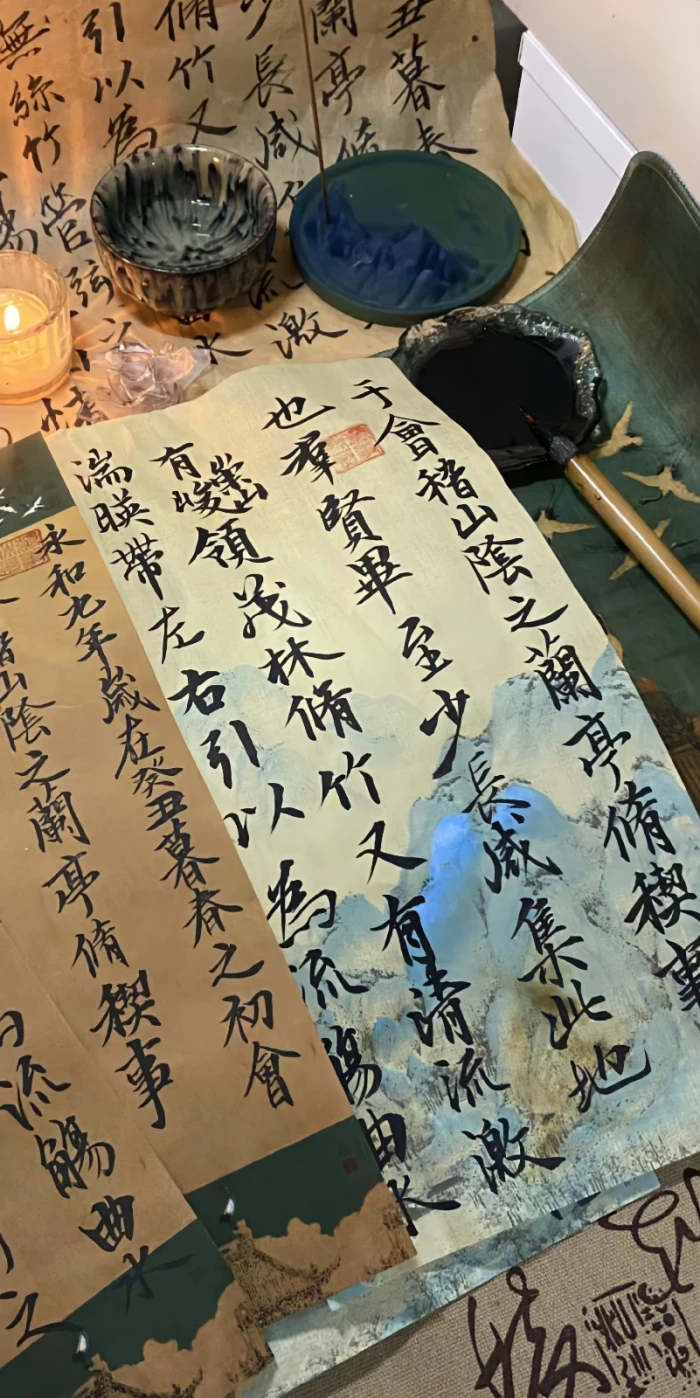 丑暮春
蘭亭脩
少長咸
激
脩竹又
引以為
水
無絲竹
管弦之
于會稽山陰之蘭亭脩稧事
也羣賢畢至少長咸集此地
有崇山峻領茂林脩竹又有清流激
湍暎帶左右引以為流觴曲水
永和九年歲在癸丑暮春之初會
稽山陰之蘭亭脩稧事
流觴曲水